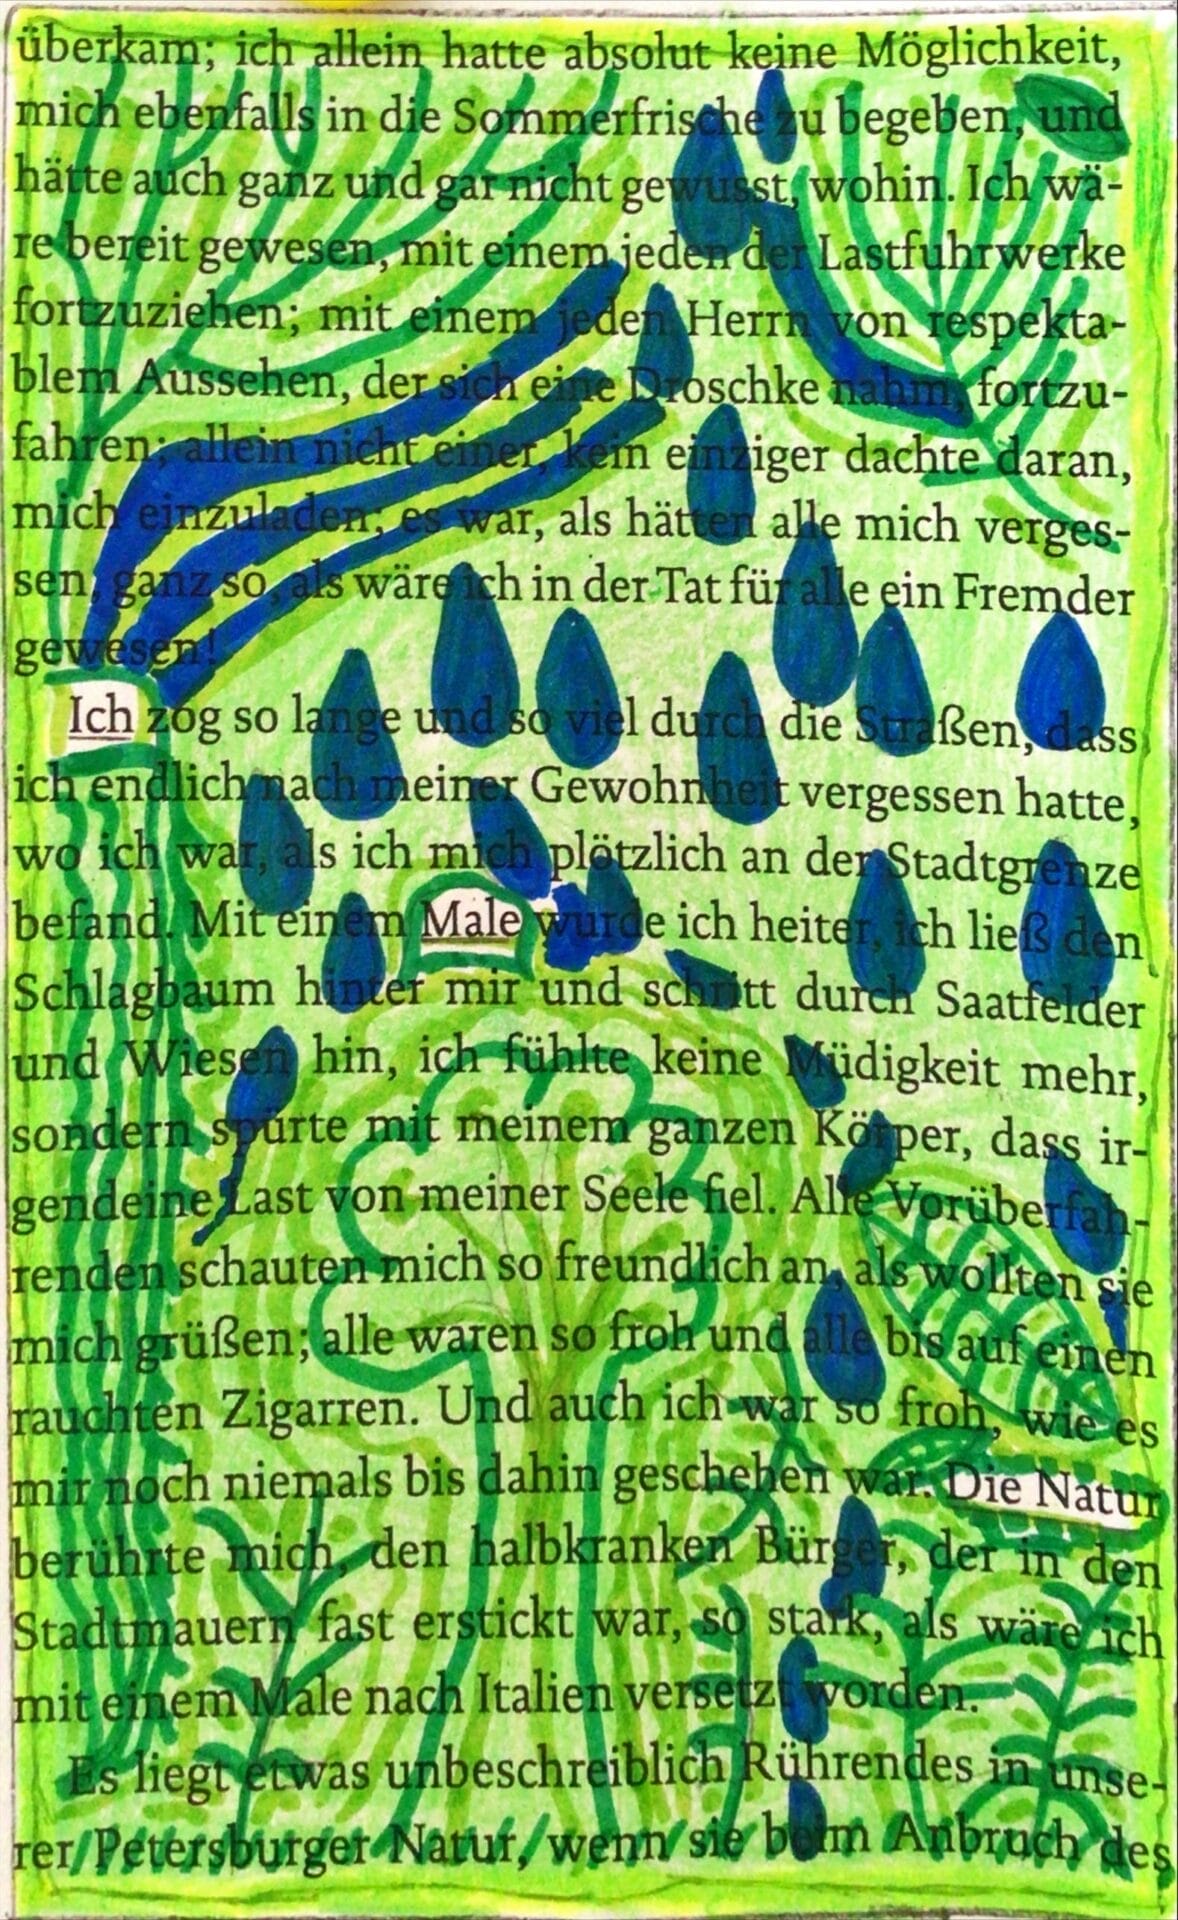 überkam; ich allein hatte absolut keine Möglichkeit,
mich ebenfalls in die Sommerfrische zu begeben, und
hätte auch ganz und gar nicht gewusst, wohin. Ich wä-
re bereit gewesen, mit einem jeden der Lastfuhrwerke
fortzuziehen; mit einem jeden Herrn von respekta-
blem Aussehen, der sich eine Droschke nahm, fortzu-
fahren; allein nicht einer, kein einziger dachte daran,
mich einzuladen; es war, als hätten alle mich verges-
sen, ganz so, als wäre ich in der Tat für alle ein Fremder
gewesen!
Ich zog so lange und so viel durch die Straßen, dass
ich endlich nach meiner Gewohnheit vergessen hatte,
wo ich war, als ich mich plötzlich an der Stadtgrenze
befand. Mit einem Male wurde ich heiter, ich ließ den
Schlagbaum hinter mir und schritt durch Saatfelder
und Wiesen hin, ich fühlte keine Müdigkeit mehr,
sondern spürte mit meinem ganzen Körper, dass ir-
gendeine Last von meiner Seele fiel. Alle Vorüberfah-
renden schauten mich so freundlich an, als wollten sie
mich grüßen; alle waren so froh und alle bis auf einen
rauchten Zigarren. Und auch ich war so froh, wie es
mir noch niemals bis dahin geschehen war. Die Natur
berührte mich, den halbkranken Bürger, der in den
Stadtmauern fast erstickt war, so stark, als wäre ich
mit einem Male nach Italien versetzt worden.
Es liegt etwas unbeschreiblich Rührendes in unse-
rer Petersburger Natur, wenn sie beim Anbruch des